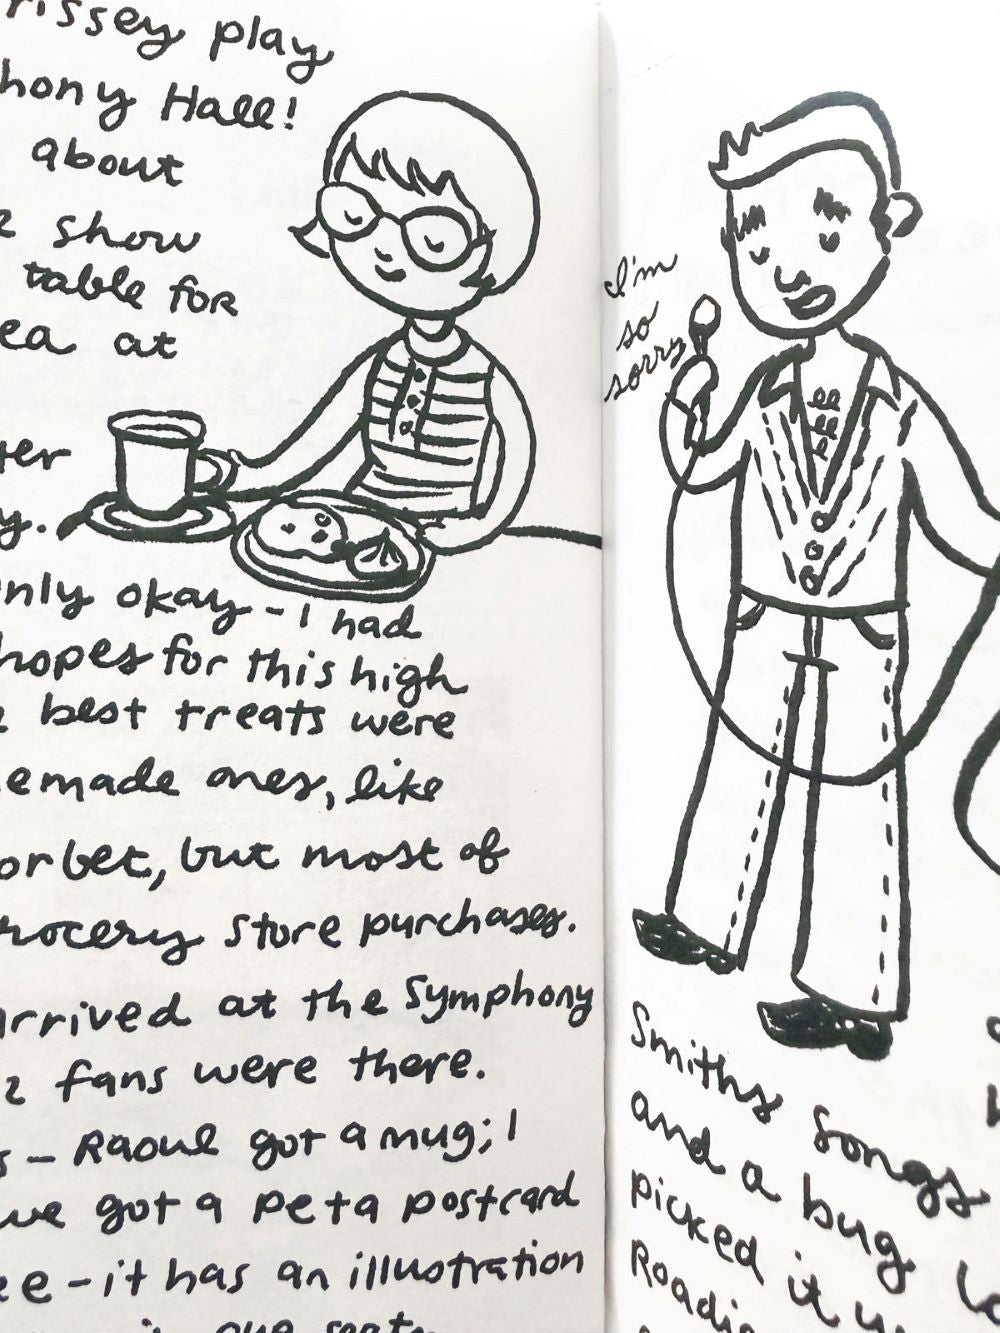 rissey play
hony Hall!
about
show
table for
ea at
ter
y.
nly okay - I had
hopes for this high
best treats were
emade ones, like
orbet, but most of
rocery store purchases.
arrived at the Symphony
fans were there.
s - Raoul got a mug; I
we got a PETA postcard
ee - it has an illustration
our seats
I'm
so
sorry
Smiths songs
and a bug
picked it u
Roadi